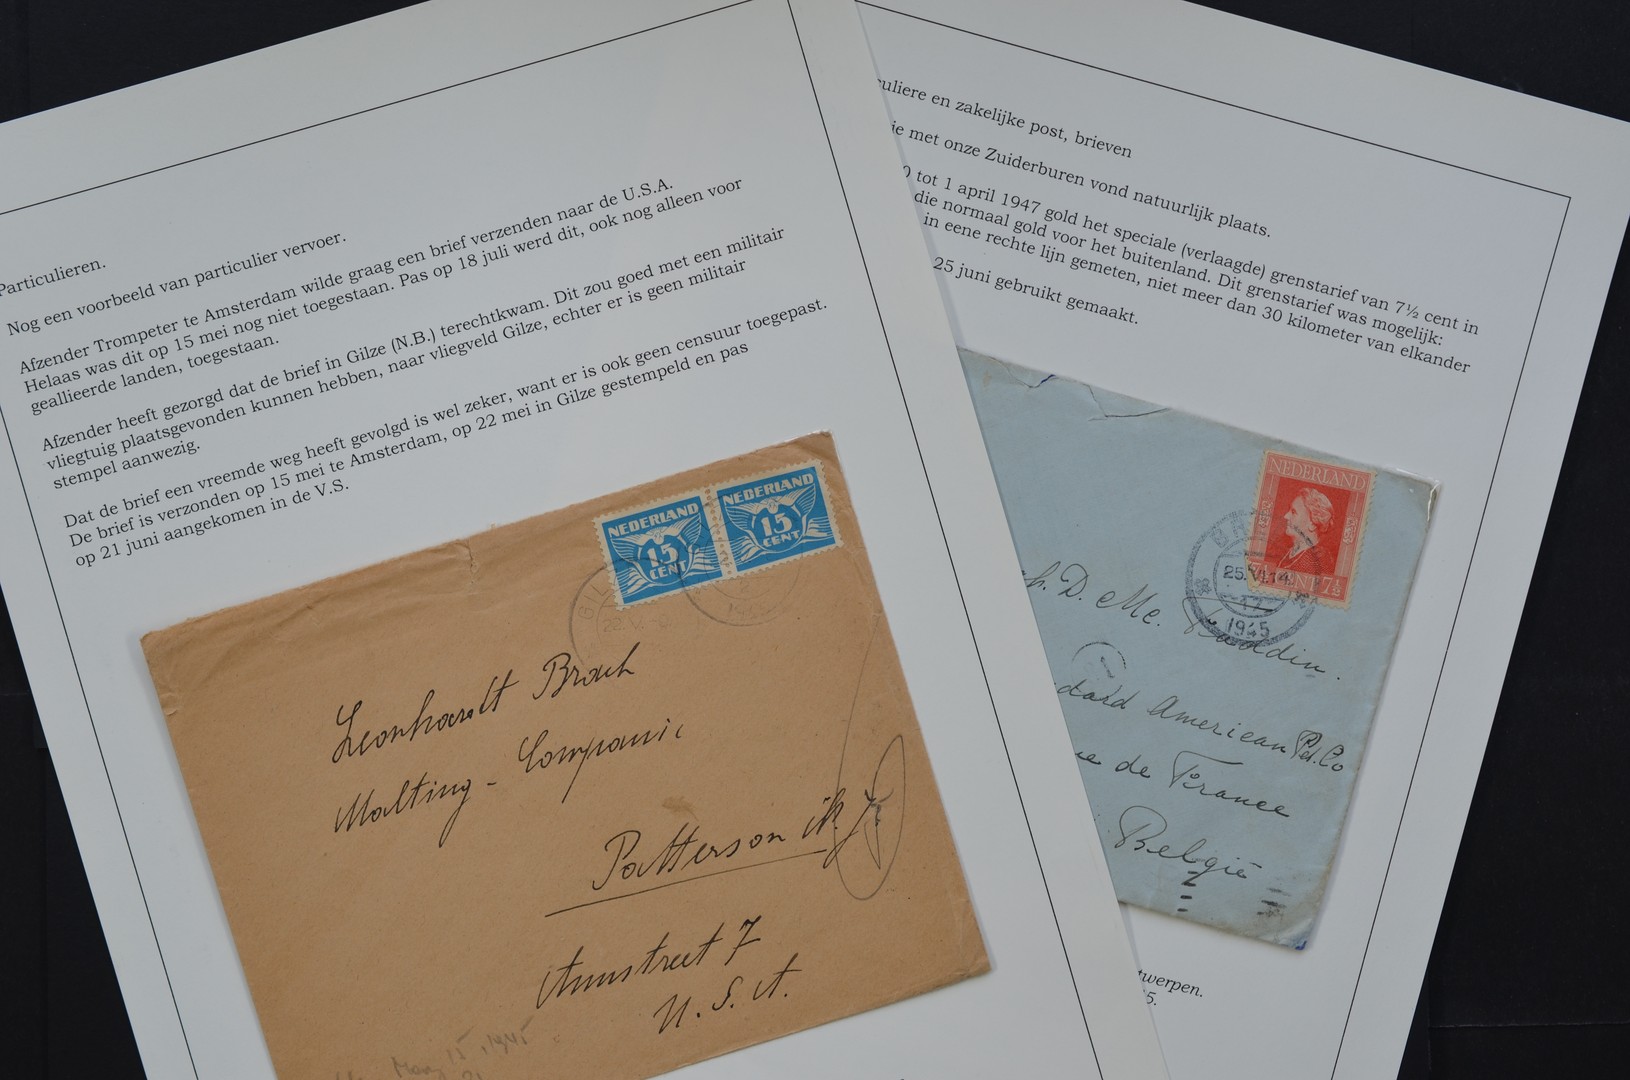 Particulieren.
Nog een voorbeeld van particulier vervoer.
Afzender Trompeter te Amsterdam wilde graag een brief verzenden naar de U.S.A.
Helaas was dit op 15 mei nog niet toegestaan. Pas op 18 juli werd dit, ook nog alleen voor
geallieerde landen, toegestaan.
Afzender heeft gezorgd dat de brief in Gilze (N.B.) terechtkwam. Dit zou goed met een militair
vliegtuig plaatsgevonden kunnen hebben, naar vliegveld Gilze, echter er is geen militair
stempel aanwezig.
Dat de brief een vreemde weg heeft gevolgd is wel zeker, want er is ook geen censuur toegepast.
De brief is verzonden op 15 mei te Amsterdam, op 22 mei in Gilze gestempeld en pas
op 21 juni aangekomen in de V.S.
NEDERLAND
15
CENT
NEDERLAND
15
CENT
Leonhardt Brach
Malting - Companie
Patterson
Annstreet 7
U. S. A.
May 15, 1945
culiere en zakelijke post, brieven
je met onze Zuiderburen vond natuurlijk plaats.
0 tot 1 april 1947 gold het speciale (verlaagde) grenstarief van 7½ cent in
die normaal gold voor het buitenland. Dit grenstarief was mogelijk:
in eene rechte lijn gemeten, niet meer dan 30 kilometer van elkander
25 juni gebruikt gemaakt.
NEDERLAND
CENT 7½
1945
h. D. Mc.
dard American Pet. Co
ue de France
België
twerpen.
5.